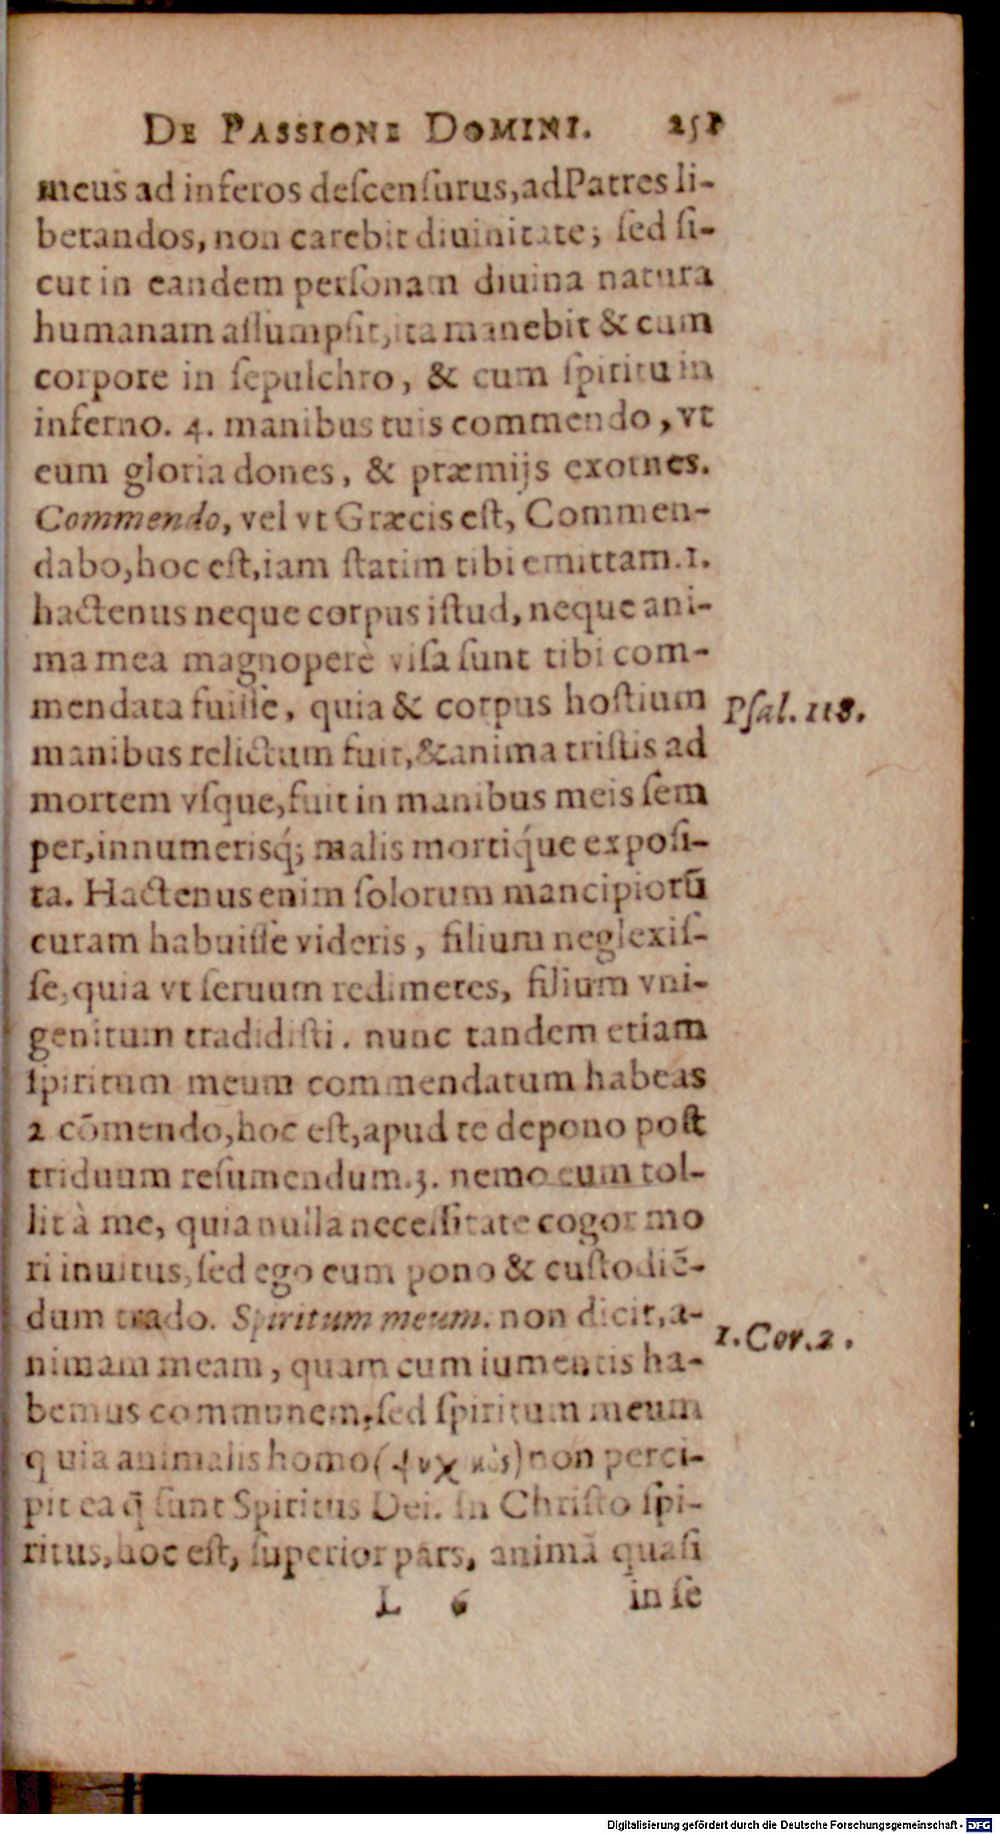 DE PASSIONE DOMINI. 251
meus ad inferos deſcenſurus, ad Patres li-
berandos, non carebit diuinitate; ſed ſi-
cut in eandem perſonam diuina natura
humanam aſſumpſit, ita manebit & cum
corpore in ſepulchro, & cum ſpiritu in
inferno. 4. manibus tuis commendo, vt
eum gloria dones, & præmijs exornes.
Commendo, vel vt Græcis eſt, Commen-
dabo, hoc eſt, iam ſtatim tibi emittam. 1.
hactenus neque corpus iſtud, neque ani-
ma mea magnoperè viſa ſunt tibi com-
mendata fuiſſe, quia & corpus hoſtium
Pſal. 118.
manibus relictum fuit, & anima triſtis ad
mortem vſque, fuit in manibus meis ſem
per, innumerisq́; malis mortiq́ue expoſi-
ta. Hactenus enim ſolorum mancipiorū
curam habuiſſe videris, filium neglexiſ-
ſe, quia vt ſeruum redimeres, filium vni-
genitum tradidiſti. nunc tandem etiam
ſpiritum meum commendatum habeas
2 cōmendo, hoc eſt, apud te depono poſt
triduum reſumendum. 3. nemo eum tol-
lit à me, quia nulla neceſſitate cogor mo
ri inuitus, ſed ego eum pono & cuſtodiē-
dum trado. Spiritum meum. non dicit, a-
1. Cor. 2.
nimam meam, quam cum iumentis ha-
bemus communem, ſed ſpiritum meum
quia animalis homo (ψυχικὸς) non perci-
pit ea q̄ ſunt Spiritus Dei. In Chriſto ſpi-
ritus, hoc eſt, ſuperior pars, animā quaſi
L 6 in ſe
Digitalisierung gefördert durch die Deutsche Forschungsgemeinschaft - DFG